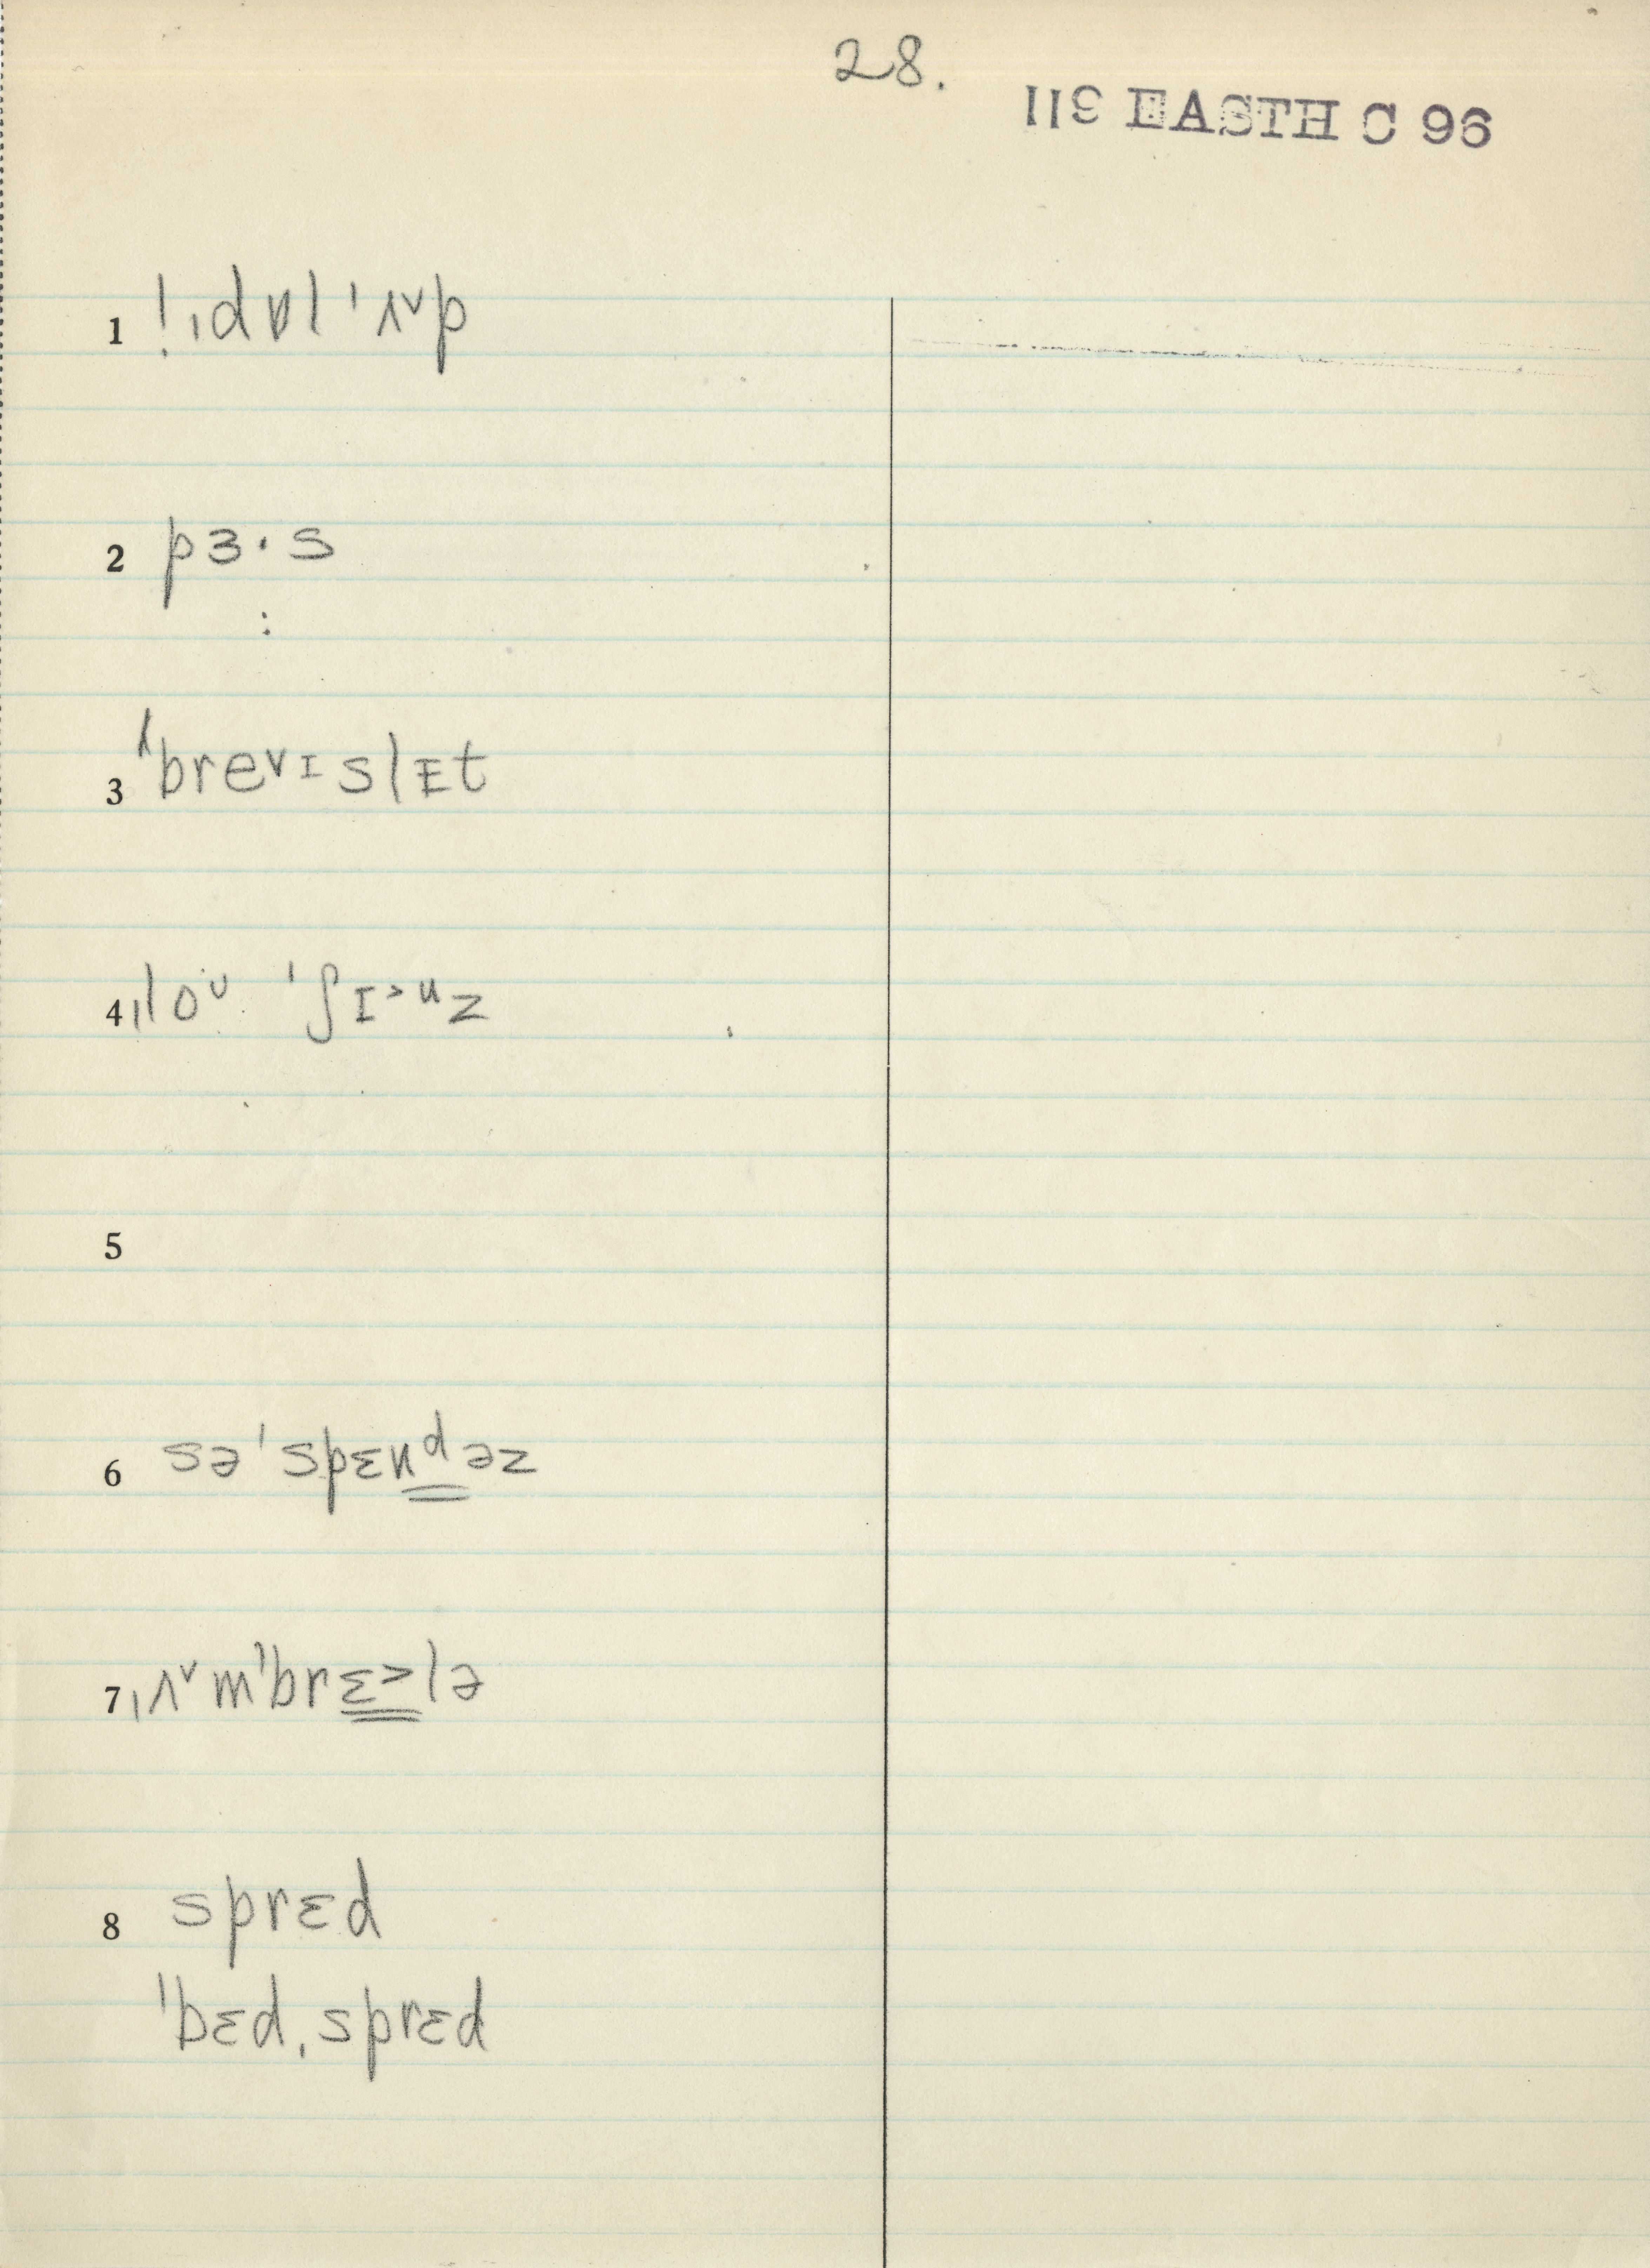 28.
119 EASTH C 96
1 !ˌdɒl ˈʌ˅p
2 pɜ·s
:
3 ˈbrevɪslᴇt
4 ˌloᴜ ˈʃɪ˃ᵘz
5
6 səˈspɛnᵈəz
7 ˌʌ˅mˈbrɛ˃lə
8 sprɛd
ˈbɛdˌsprɛd